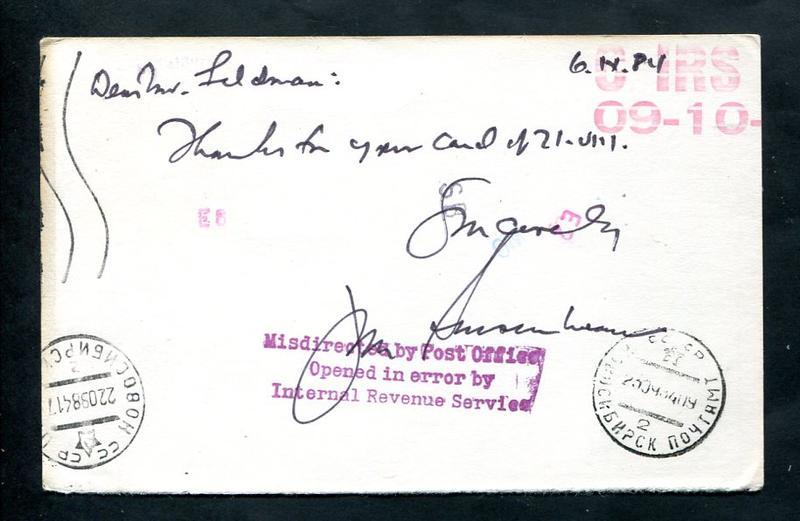 Dear Mr. Feldman:
6.IX.84
C-IRS
09-10-
Thanks for your card of 21.VIII.
E8
Sincerely
Misdirected by Post Office
Opened in error by
Internal Revenue Service
НОВОСИБИРСК
СССР
22098417
2
НОВОСИБИРСК ПОЧТАМТ
СССР
2